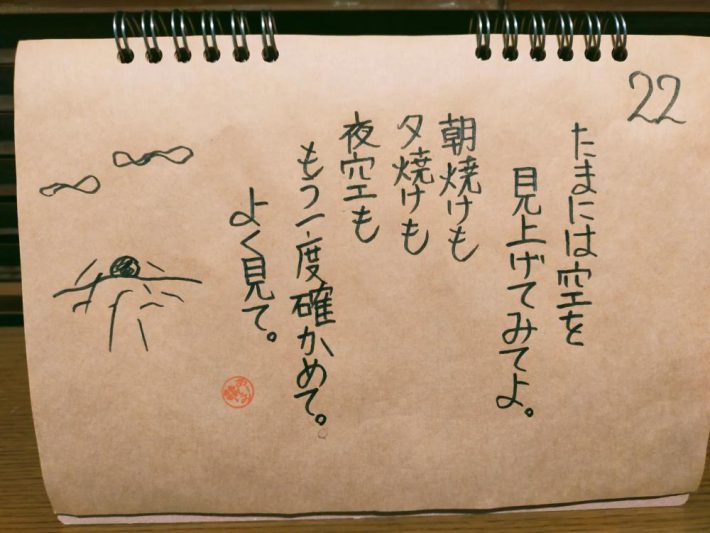 22
たまには空を
見上げてみてよ。
朝焼けも
夕焼けも
夜空も
もう一度確かめて。
よく見て。